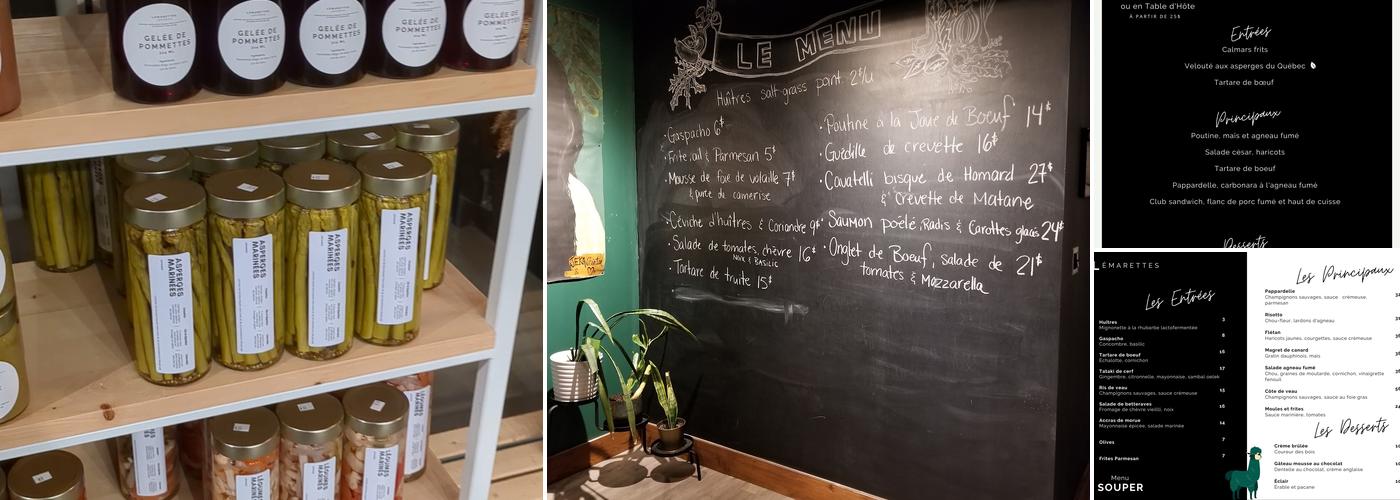 GELÉE DE
POMMETTES
GELÉE DE
POMMETTES
GELÉE DE
POMMETTES
GELÉE DE
POMMETTES
ASPERGES
MARINÉES
ASPERGES
MARINÉES
ASPERGES
MARINÉES
ASPERGES
MARINÉES
LÉGUMES
MARINÉS
LÉGUMES
MARINÉS
LÉGUMES
MARINÉS
LE MENU
Huîtres salt-grass point 2$/u
· Gaspacho 6$
· Frite, ail & Parmesan 5$
· Mousse de foie de volaille 7$
& purée de camerise
· Céviche d'huîtres & Coriandre 9$
· Salade de tomates, chèvre 16$
Noix & Basilic
· Tartare de truite 15$
· Poutine à la Joue de Boeuf 14$
· Guédille de crevette 16$
· Cavatelli bisque de Homard 27$
& Crevette de Matane
· Saumon poêlé, Radis & Carottes glacés 24$
· Onglet de Boeuf, salade de 21$
tomates & Mozzarella
ou en Table d'Hôte
À PARTIR DE 25$
Entrées
Calmars frits
Velouté aux asperges du Québec
Tartare de bœuf
Principaux
Poutine, maïs et agneau fumé
Salade césar, haricots
Tartare de boeuf
Pappardelle, carbonara à l'agneau fumé
Club sandwich, flanc de porc fumé et haut de cuisse
Desserts
LÉMARETTES
Les Entrées
Huîtres 3
Mignonette à la rhubarbe lactofermentée
Gaspache 8
Concombre, basilic
Tartare de boeuf 16
Échalotte, cornichon
Tataki de cerf 17
Gingembre, citronnelle, mayonnaise, sambal oelek
Ris de veau 15
Champignons sauvages, sauce crémeuse
Salade de betteraves 16
Fromage de chèvre vieilli, noix
Accras de morue 14
Mayonnaise épicée, salade marinée
Olives 7
Frites Parmesan 7
Menu
SOUPER
Les Principaux
Pappardelle
Champignons sauvages, sauce crémeuse,
parmesan
Risotto
Chou-fleur, lardons d'agneau
Flétan
Haricots jaunes, courgettes, sauce crémeuse
Magret de canard
Gratin dauphinois, maïs
Salade agneau fumé
Chou, graines de moutarde, cornichon, vinaigrette
fenouil
Côte de veau
Champignons sauvages, sauce au foie gras
Moules et frites
Sauce marinière, tomates
Les Desserts
Crème brûlée
Coureur des bois
Gâteau mousse au chocolat
Dentelle au chocolat, crème anglaise
Éclair
Érable et pacane